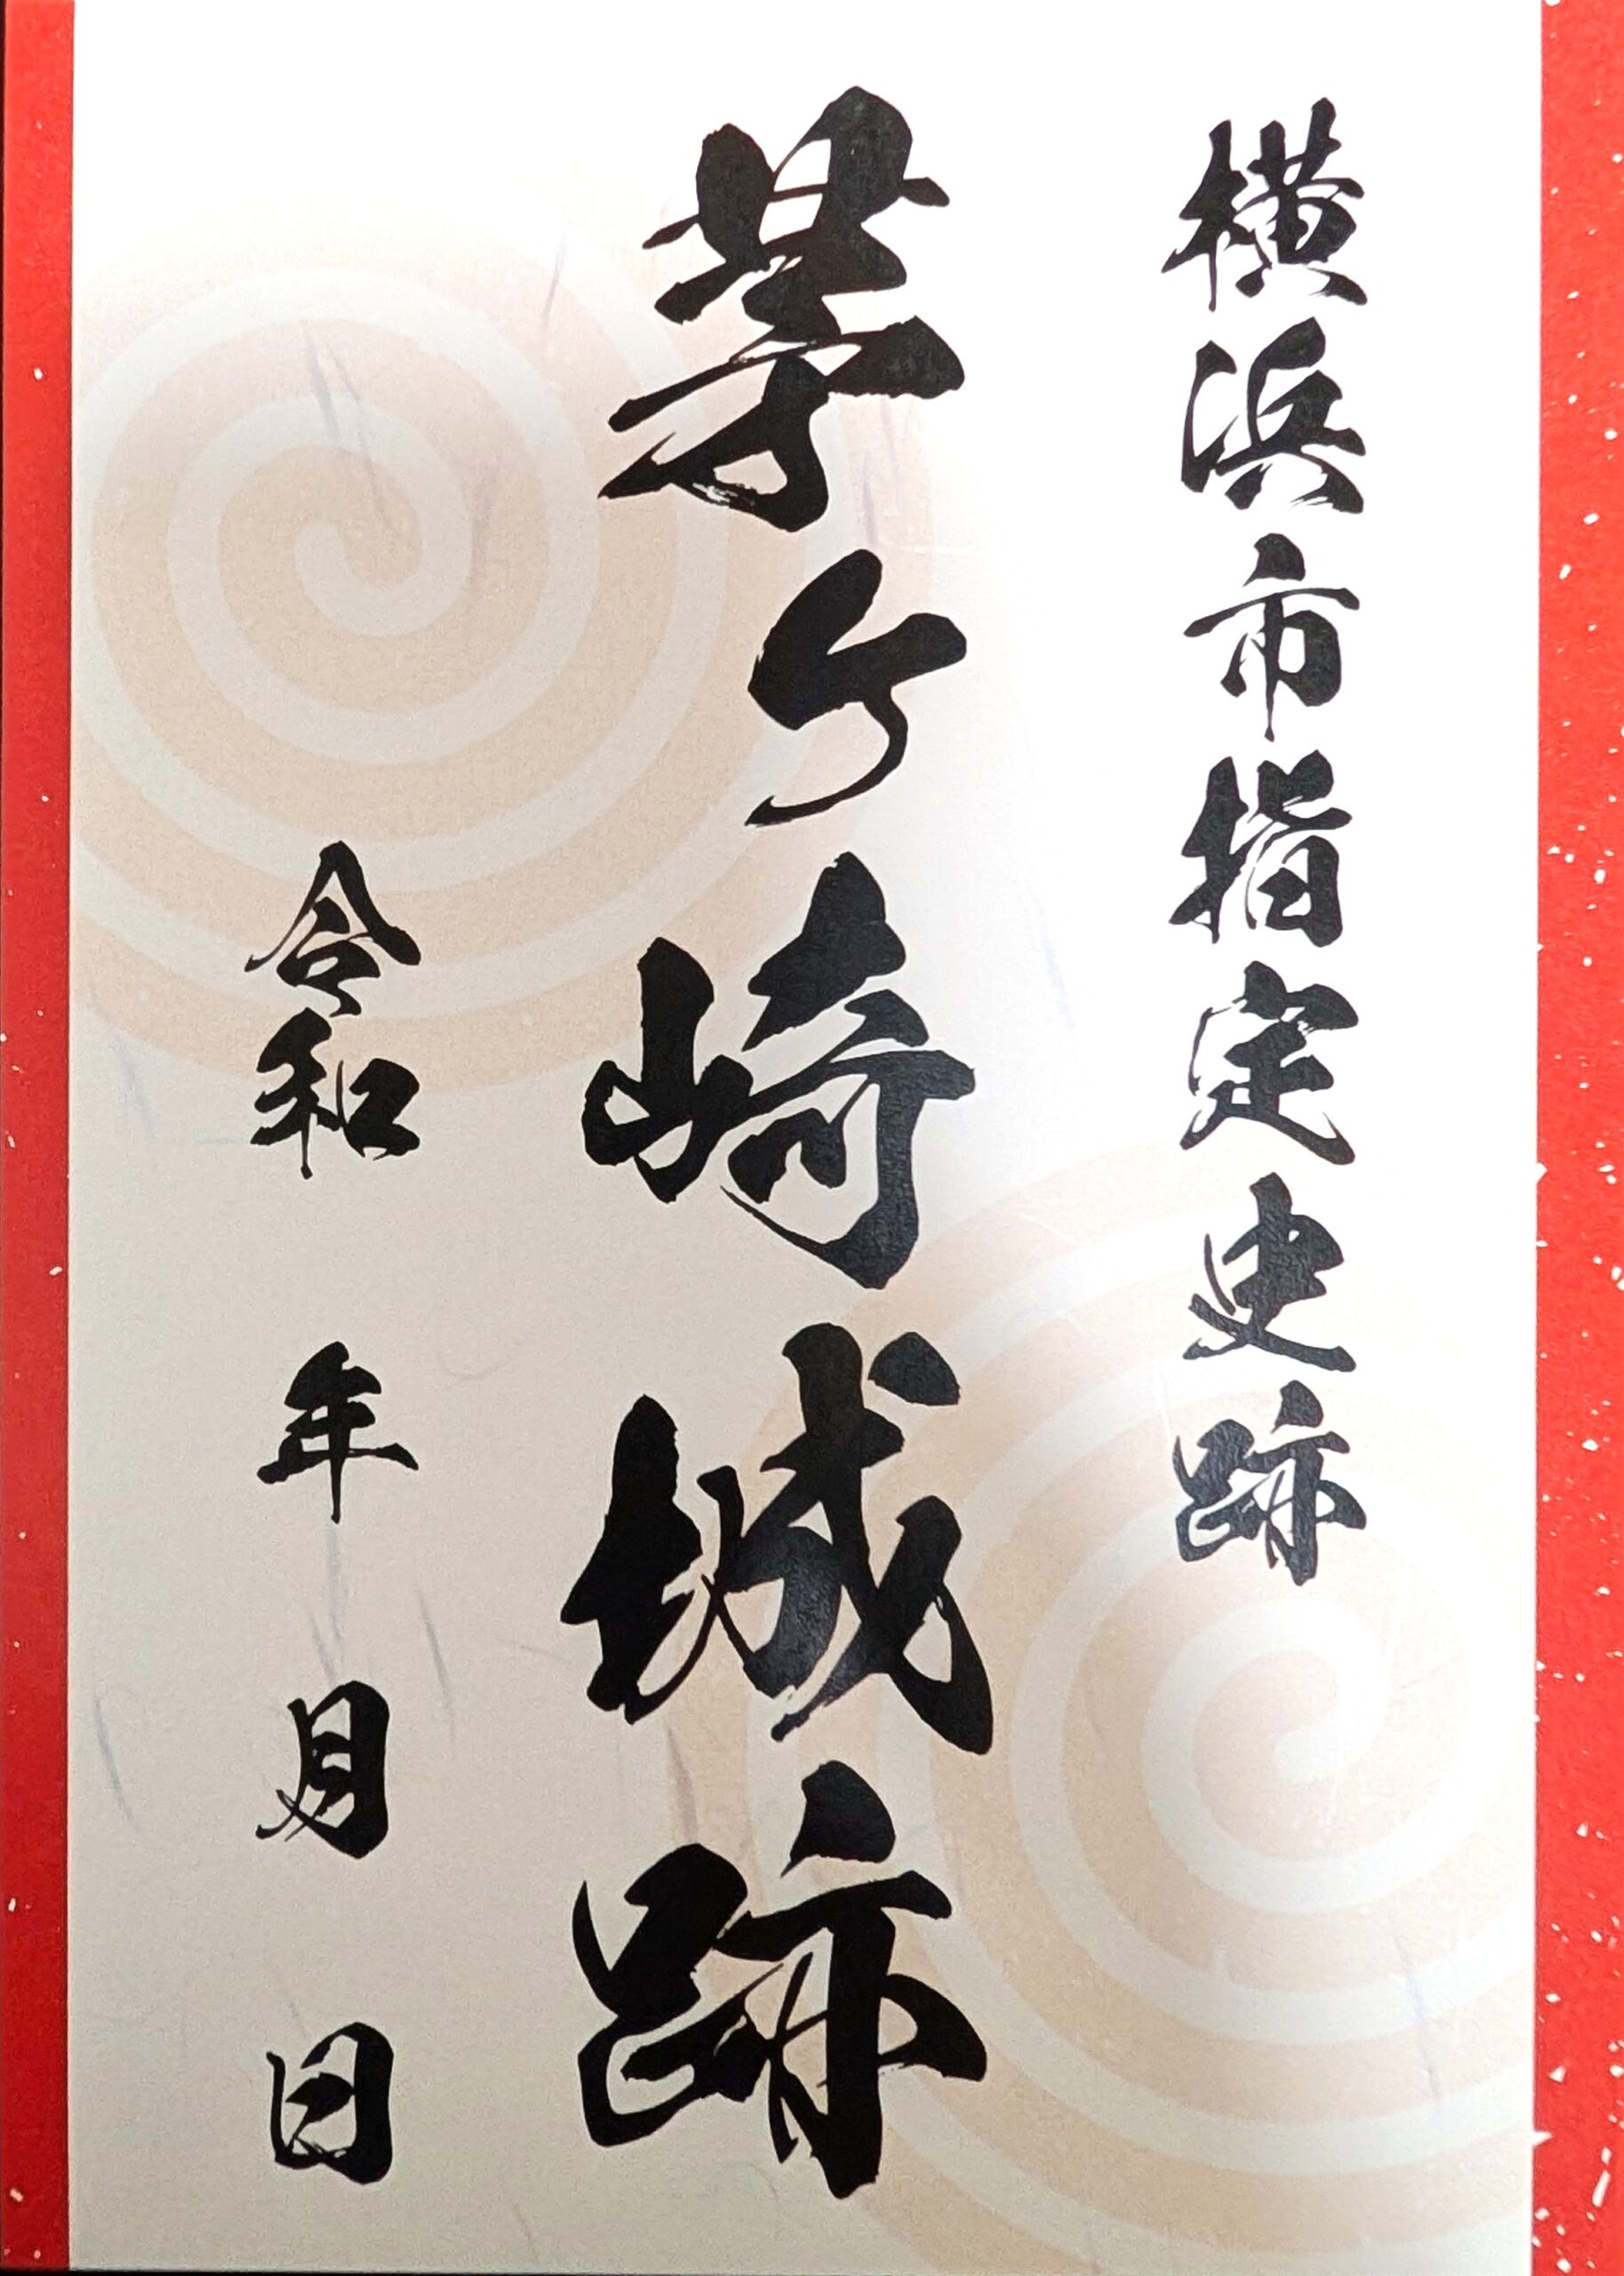 横浜市指定史跡
茅ケ崎城跡
令和　年　月　日